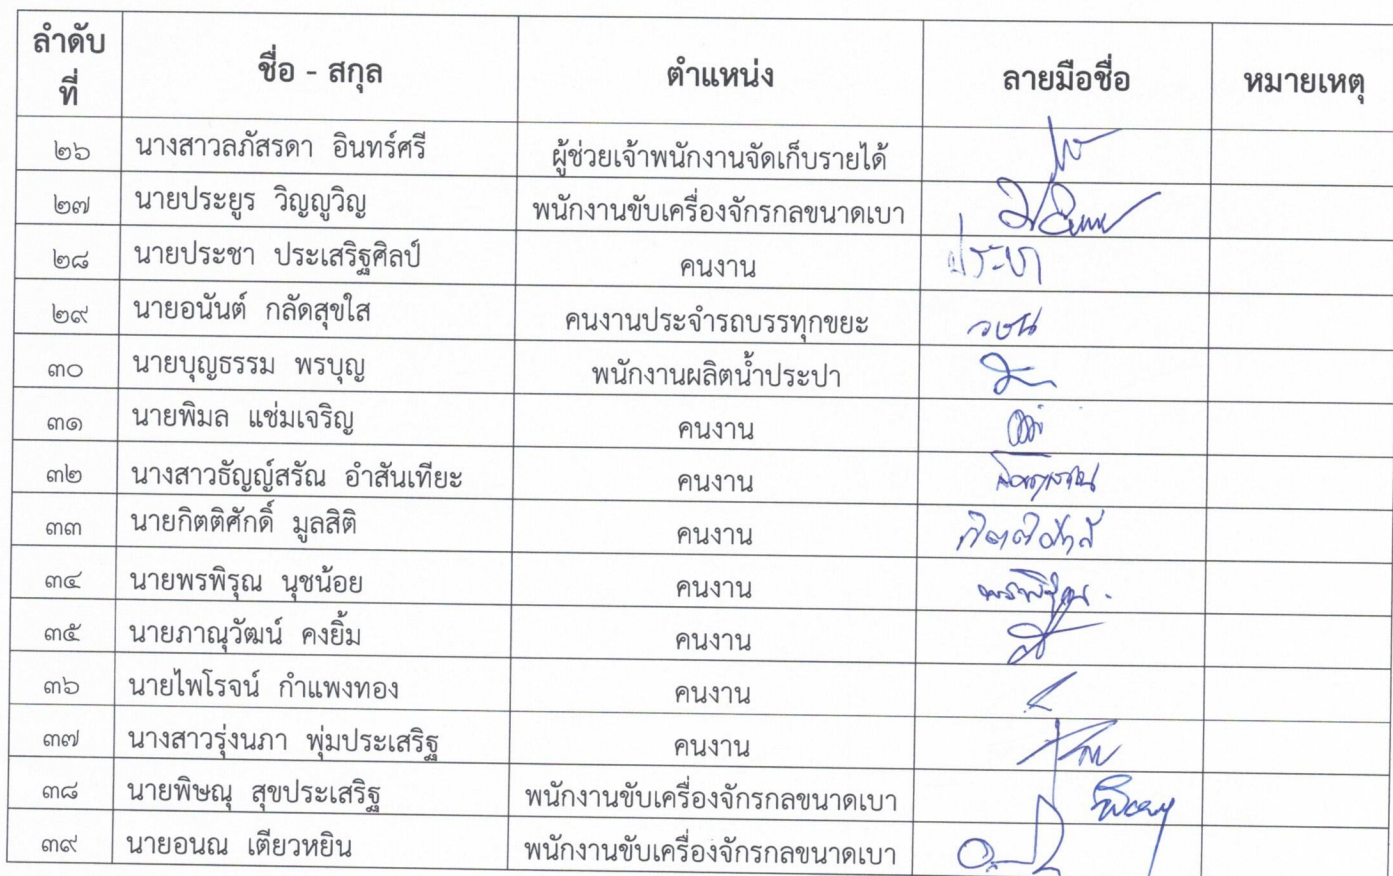 ลำดับที่ ชื่อ - สกุล ตำแหน่ง ลายมือชื่อ หมายเหตุ
๒๖ นางสาวลภัสรดา อินทร์ศรี ผู้ช่วยเจ้าพนักงานจัดเก็บรายได้
๒๗ นายประยูร วิญญูวิญ พนักงานขับเครื่องจักรกลขนาดเบา
๒๘ นายประชา ประเสริฐศิลป์ คนงาน ประชา
๒๙ นายอนันต์ กลัดสุขใส คนงานประจำรถบรรทุกขยะ
๓๐ นายบุญธรรม พรบุญ พนักงานผลิตน้ำประปา
๓๑ นายพิมล แช่มเจริญ คนงาน
๓๒ นางสาวธัญญ์สรัณ อำสันเทียะ คนงาน
๓๓ นายกิตติศักดิ์ มูลสิติ คนงาน
๓๔ นายพรพิรุณ นุชน้อย คนงาน พรพิรุณ
๓๕ นายภาณุวัฒน์ คงยิ้ม คนงาน
๓๖ นายไพโรจน์ กำแพงทอง คนงาน
๓๗ นางสาวรุ่งนภา พุ่มประเสริฐ คนงาน
๓๘ นายพิษณุ สุขประเสริฐ พนักงานขับเครื่องจักรกลขนาดเบา
๓๙ นายอนณ เตียวหยิน พนักงานขับเครื่องจักรกลขนาดเบา